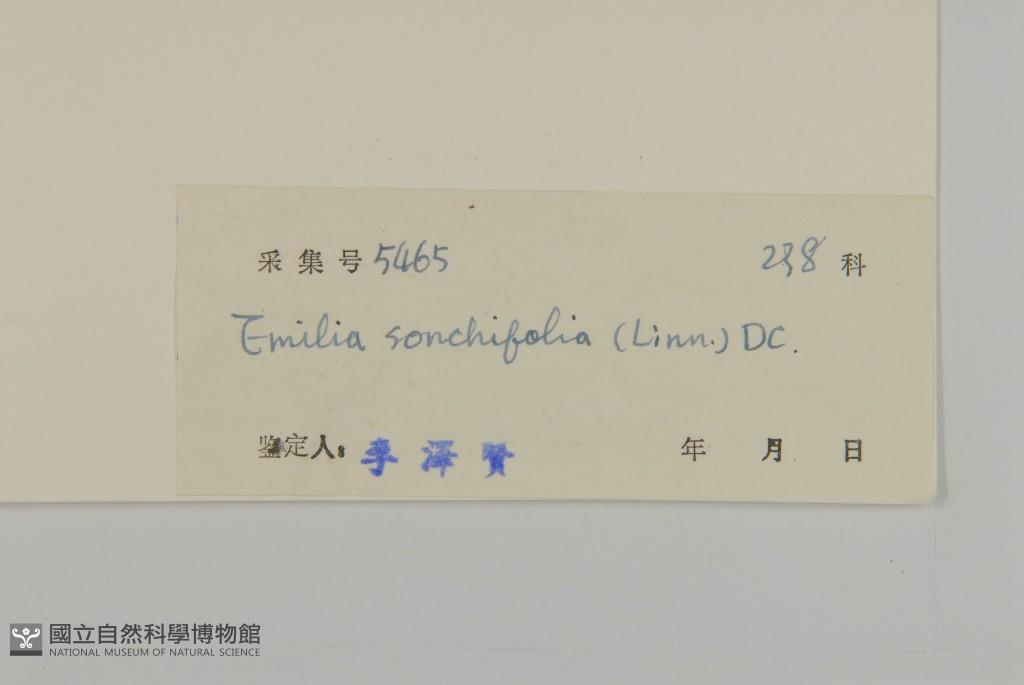 采集号 5465 238 科
Emilia sonchifolia (Linn.) DC.
鉴定人: 李泽贤 年 月 日
國立自然科學博物館
NATIONAL MUSEUM OF NATURAL SCIENCE